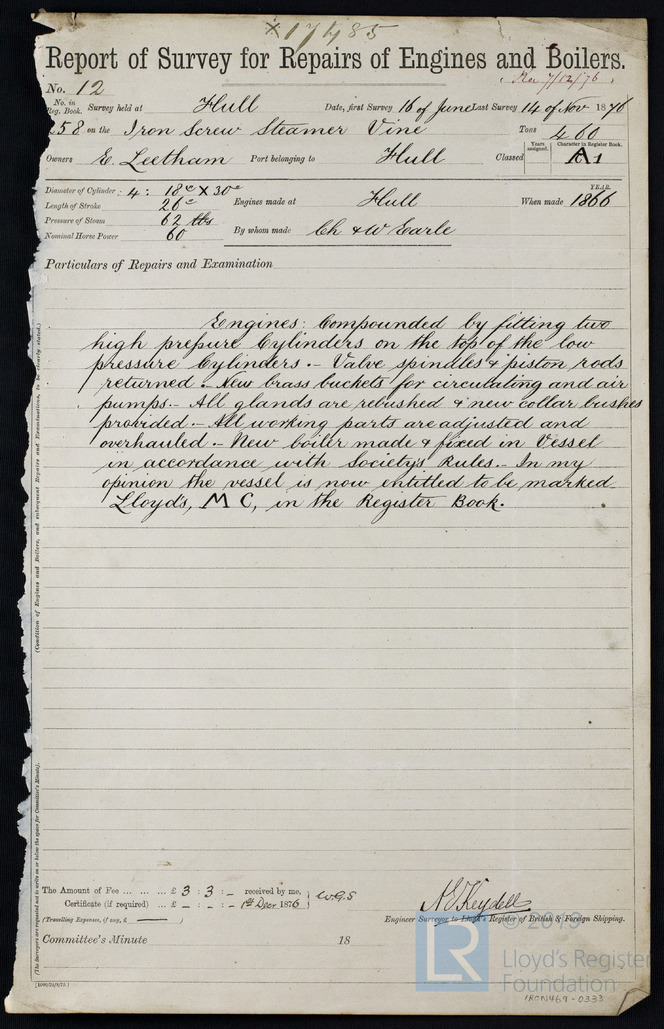 x 17485
Report of Survey for Repairs of Engines and Boilers.
Rec 7/12/76
No. 12
No. in Reg. Book. Survey held at Hull Date, first Survey 16 of June Last Survey 14 of Nov 1876
258 on the Iron Screw Steamer Vine Tons 460
Owners E. Leetham Port belonging to Hull Classed Years assigned. Character in Register Book. A1
Diameter of Cylinder : 4 : 18" x 30"
Length of Stroke 26" Engines made at Hull When made YEAR. 1866
Pressure of Steam 62 lbs
Nominal Horse Power 60 By whom made Ch & W Earle
Particulars of Repairs and Examination
Engines: Compounded by fitting two
high presure Cylinders on the top of the low
pressure Cylinders. - Valve spindles & piston rods
returned. - New brass buckets for circulating and air
pumps. - All glands are rebushed & new collar bushes
provided. - All working parts are adjusted and
overhauled. - New boiler made & fixed in Vessel
in accordance with Society's Rules. - In my
opinion the vessel is now entitled to be marked
Lloyd's, MC, in the Register Book.
(Condition of Engines and Boilers, and subsequent Repairs and Examinations, to be clearly stated.)
(The Surveyors are requested not to write on or below the space for Committee's Minute).
The Amount of Fee ... ... ... £ 3 : 3 : - received by me, W.G.S
Certificate (if required) ... £ - : - : - 1st Decr 1876
(Travelling Expenses, if any, £ )
Engineer Surveyor to Lloyd's Register of British & Foreign Shipping.
Committee's Minute 18
© 2019
LR Lloyd's Register
Foundation
IRON469-0333